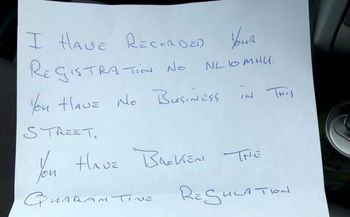 I HAVE RECORDED YOUR
REGISTRATION NO NL10MHU.
YOU HAVE NO BUSINESS IN THIS
STREET.
YOU HAVE BROKEN THE
QUARANTINE REGULATION